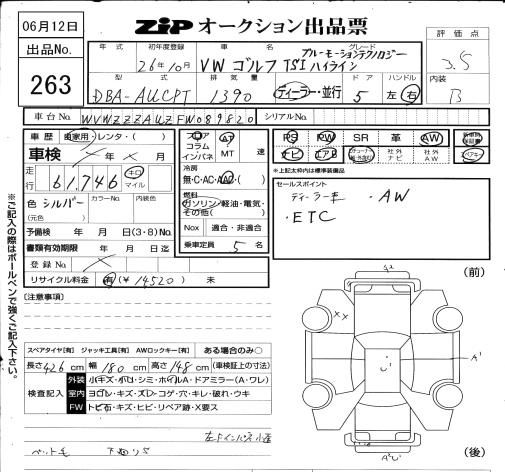 06月12日
ZIP オークション出品票
出品No.
263
年式 初年度登録 車名 グレード
26年10月 VW ゴルフ TSI ハイライン ブルーモーションテクノロジー
型式 排気量 ドア ハンドル
DBA-AUCPT 1390 ディーラー・並行 5 左・右
評価点
3.5
内装
B
車台No. WVWZZZAUZFW089820 シリアルNo.
車歴 自家用・レンタ・( )
車検 年 月
走行 61,746 キロ マイル
色 シルバー カラーNo. 内装色
(元色)
予備検 年 月 日(3・8)No.
書類有効期限 年 月 日迄
登録No.
リサイクル料金 有(¥14520) 未
フロア コラム インパネ AT MT 速
冷房
無・C・AC・AAC( )
燃料
ガソリン・軽油・電気・その他( )
Nox 適合・非適合
乗車定員 5 名
PS PW SR 革 AW
ナビ エアB 社外ナビ 社外AW
※上記太枠内は標準装備品
セールスポイント
ディーラー車 ・AW
・ETC
※ご記入の際はボールペンで強くご記入下さい。
[注意事項]
スペアタイヤ[有] ジャッキ工具[有] AWロックキー[有] ある場合のみ○
長さ426cm 幅180cm 高さ148cm (車検証上の寸法)
検査記入
外装 小キズ・小凹・シミ・ホイルA・ドアミラー(A・ワレ)
室内 ヨゴレ・キズ・スレ・コゲ・穴・キレ・破れ・ウキ
FW トビ石・キズ・ヒビ・リペア跡・X要ス
(前)
(後)